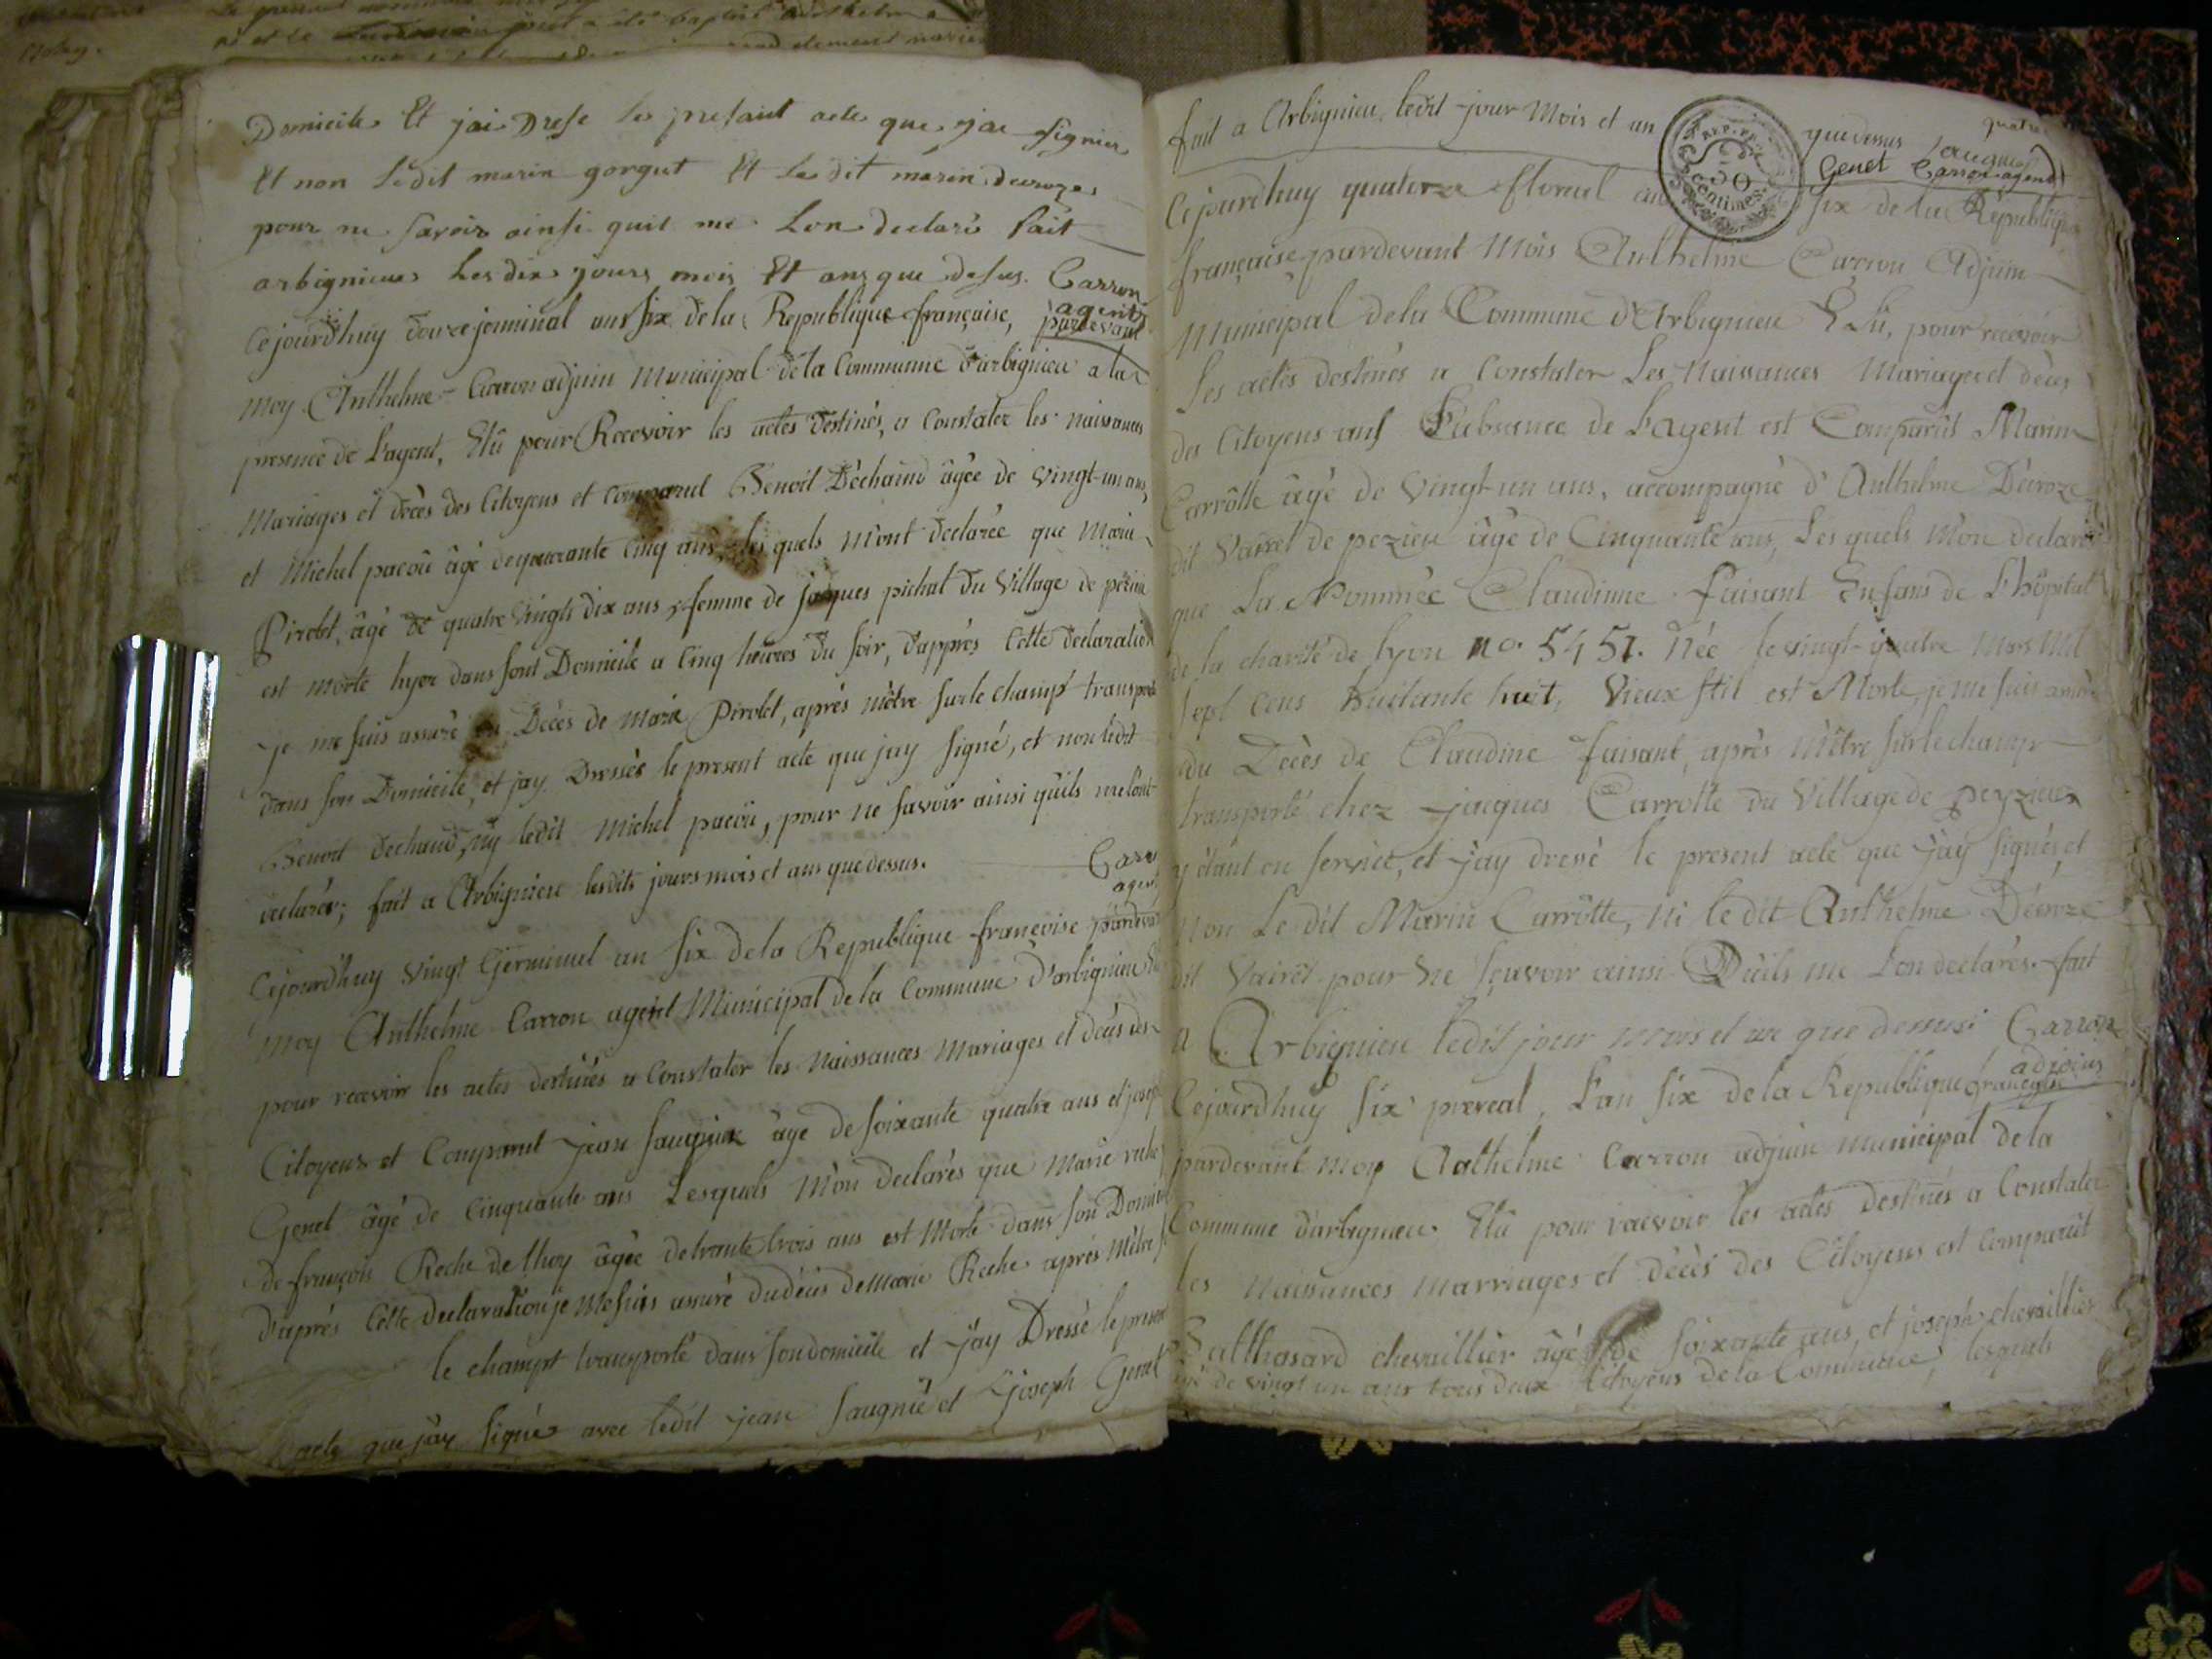 Domicile Et jai Drese le presant acte que jai signier
Et non Ledit marin gorgut Et Le dit marin deroze
pour ne savoir ainsi quil me Lon declaré fait
arbignieu Les dix jours mois Et ans que desus. Carron
agent
Cejourdhuy douze jerminal ans six dela Republique française, pardevant
moy Anthelme Carron adjuin Municipal de la Commune d'arbignieu a la
presence de Lagent, Elû pour Recevoir les actes destinés, a Constater les naissances
Mariages et décès des Citoyens et comparut Benoit Dechaud âgée de vingt-un ans,
et Michel pacoü âgé de quarante cinq ans, les quels M'ont declarée que Marie
Pirolet, âgé de quatre vingts dix ans, femme de jaques pichat du Village de pezieu
est Morte hyer dans sont Domicile a Cinq heures du soir, d'apprès Cette declaration
je me suis assuré du Décès de Marie Pirolet, après m'être sur le champ transporté
dans son Domicile, et jay Dressés le present acte que jay signé, et non ledit
Benoit dechaud, ny ledit Michel pacoü, pour ne savoir ainsi qu'ils me l'ont
declarér; fait a Arbignieu lesdits jours mois et ans que dessus.
Carr
agent
Cejourdhuy vingt Germinal an six de la Republique françoise pardevant
moy Anthelme Carron agent Municipal de la Commune d'arbignieu
pour recevoir les actes destinés a Constater les Naissances Mariages et décès des
Citoyens et Comparut jean saugnier âgé de soixante quatre ans et joseph
Genet âgé de Cinquante ans Lesquels M'on declarés que Marie
de françois Roche de thoy âgée de trante trois ans est Morte dans son Domicile
d'après Cette declaration je Me suis assuré du décès de Marie Roche après M'être
le champt transporté dans son domicile et jay Dressé le present
acte que jay signé avec ledit jean saugnié et joseph Genet
fait a Arbignieu, ledit jour Mois et an que dessus
quatre
Genet Carron agent
REP. FR.
50
centimes
Cejourdhuy quatorze floreal an six de la Republique
française pardevant Mois Anthelme Carron Adjuin
Municipal de la Commune d'Arbignieu Elû, pour recevoir
Les actes destinés a Constater Les Naissances Mariages et décès
des Citoyens ans L'absance de Lagent est Comparût Marin
Carrôtte âgé de vingt-un ans, accompagné d'Anthelme Deiroze
dit Vairet de pezieu âgé de Cinquante ans, Les quels M'on declarés
que La Nommée Claudinne faisant Enfans de L'hôpital
de la charité de lyon no. 5451. Née le vingt-quatre Mars Mil
sept Cens huitante huit, Vieux stil est Morte, je me suis assuré
du Décès de Claudine faisant, après M'être sur le champ
transporté chez jacques Carrotte du Village de peyzieu
y étant en service, et jay dressé le present acte que jay signés, et
non Le dit Marin Carrôtte, ni le dit Anthelme Déroze
dit Vairet pour ne sçavoir ainsi Quils me Lon declarés. fait
a Arbignieu ledit jour mois et an que dessus Carron
adjoins
Cejourdhuy six prereal, Lan six de la Republique française
pardevant moy Anthelme Carron adjuin municipal de la
Commune d'arbignieu Elû pour recevoir les actes destinés a Constater
les Naissances marriages et décès des Citoyens est comparût
Balthasard chevaillier âgé de soixante ans, et joseph chevaillier
de vingt un ans tous deux Citoyens de la Commune, lesquels